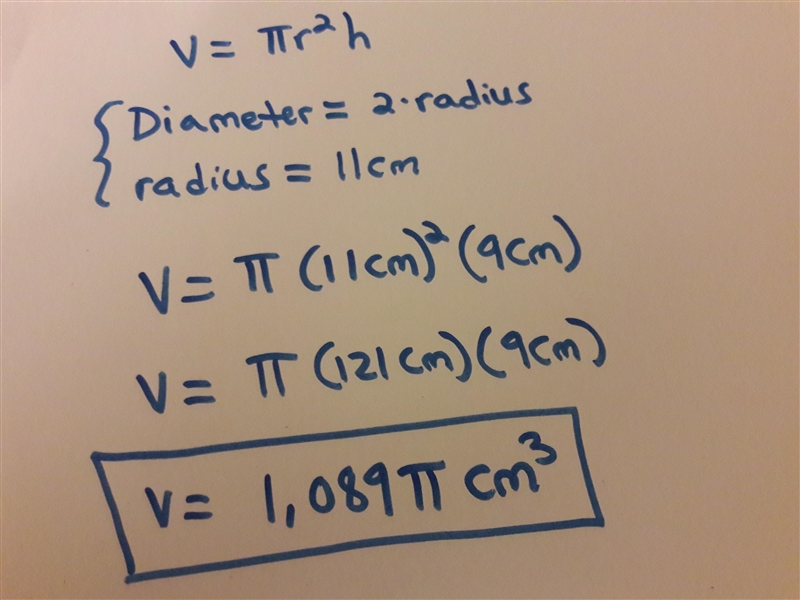 V = πr²h
{ Diameter = 2·radius
radius = 11cm
V = π (11cm)² (9cm)
V = π (121cm)(9cm)
V = 1,089π cm³